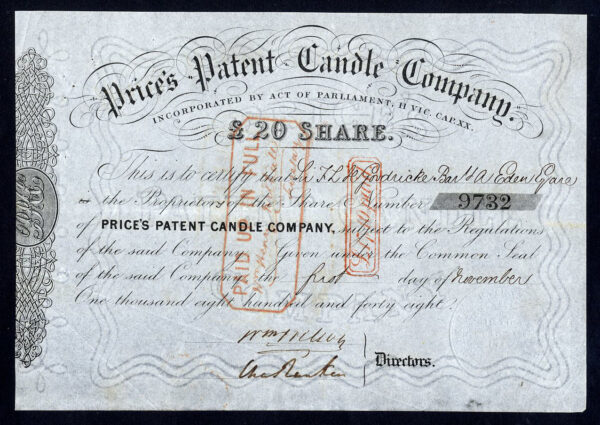 Price's Patent Candle Company.
INCORPORATED BY ACT OF PARLIAMENT, 11 VIC. CAP. XX.
£20 SHARE.
This is to certify that Sir F L H Goodricke Bart & A Eden Esqare
the Proprietors of the Share Number 9732
of PRICE'S PATENT CANDLE COMPANY, subject to the Regulations
of the said Company. Given under the Common Seal
of the said Company the first day of November
One thousand eight hundred and forty eight.
Directors.
PAID UP IN FULL